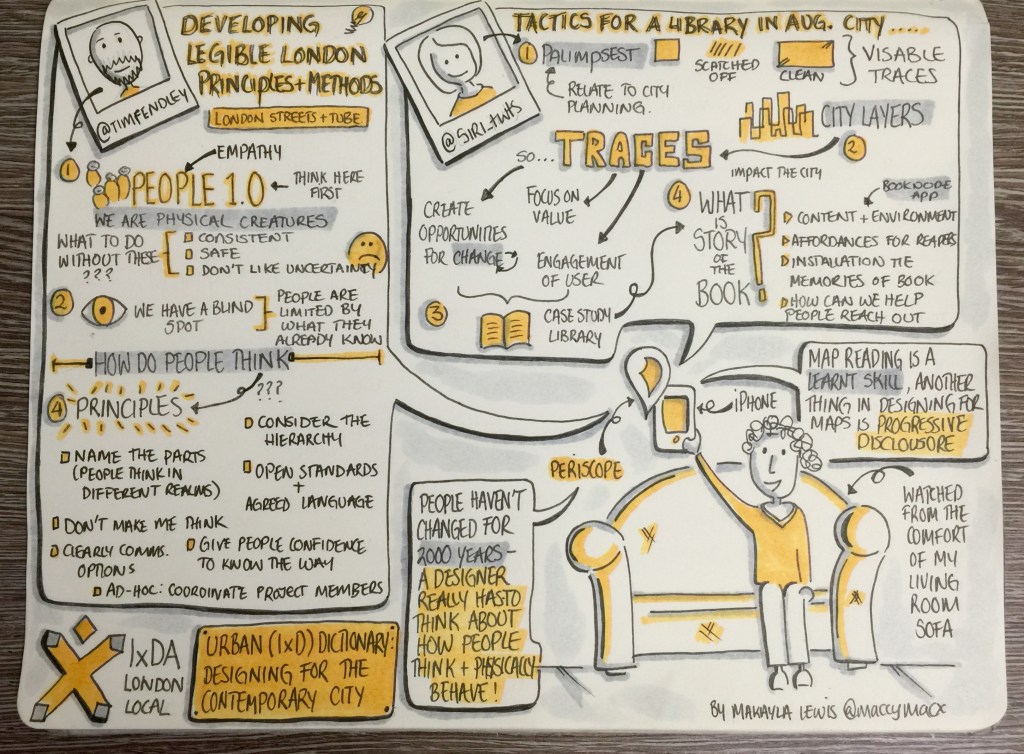 DEVELOPING
LEGIBLE LONDON
PRINCIPLES + METHODS
LONDON STREETS + TUBE
@TIMFENDLEY
1
EMPATHY
PEOPLE 1.0
THINK HERE
FIRST
WE ARE PHYSICAL CREATURES
WHAT TO DO
WITHOUT THESE
???
CONSISTENT
SAFE
DON'T LIKE UNCERTAINTY
2
WE HAVE A BLIND
SPOT
PEOPLE ARE
LIMITED BY
WHAT THEY
ALREADY KNOW
HOW DO PEOPLE THINK
???
4
PRINCIPLES
CONSIDER THE
HIERARCHY
NAME THE PARTS
(PEOPLE THINK IN
DIFFERENT REALMS)
OPEN STANDARDS
+
AGREED LANGUAGE
DON'T MAKE ME THINK
CLEARLY COMMS.
OPTIONS
GIVE PEOPLE CONFIDENCE
TO KNOW THE WAY
AD-HOC: COORDINATE PROJECT MEMBERS
IxDA
LONDON
LOCAL
URBAN (IxD) DICTIONARY:
DESIGNING FOR THE
CONTEMPORARY CITY
TACTICS FOR A LIBRARY IN AUG. CITY .....
1
PALIMPSEST
SCATCHED
OFF
CLEAN
VISABLE
TRACES
RELATE TO CITY
PLANNING.
CITY LAYERS
2
IMPACT THE CITY
SO...
TRACES
CREATE
OPPORTUNITIES
FOR CHANGE
FOCUS ON
VALUE
ENGAGEMENT
OF USER
3
CASE STUDY
LIBRARY
4
WHAT
IS
STORY
OF THE
BOOK
?
APP
CONTENT + ENVIRONMENT
AFFORDANCES FOR READERS
INSTALLATION THE
MEMORIES OF BOOK
HOW CAN WE HELP
PEOPLE REACH OUT
MAP READING IS A
LEARNT SKILL, ANOTHER
THING IN DESIGNING FOR
MAPS IS PROGRESSIVE
DISCLOSURE
iPHONE
PERISCOPE
PEOPLE HAVEN'T
CHANGED FOR
2000 YEARS -
A DESIGNER
REALLY HAS TO
THINK ABOUT
HOW PEOPLE
THINK + PHYSICALLY
BEHAVE!
WATCHED
FROM THE
COMFORT
OF MY
LIVING
ROOM
SOFA
BY MAKAYLA LEWIS @maccymacx